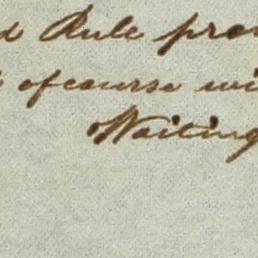 d Rule pro
of course wi
Waiting